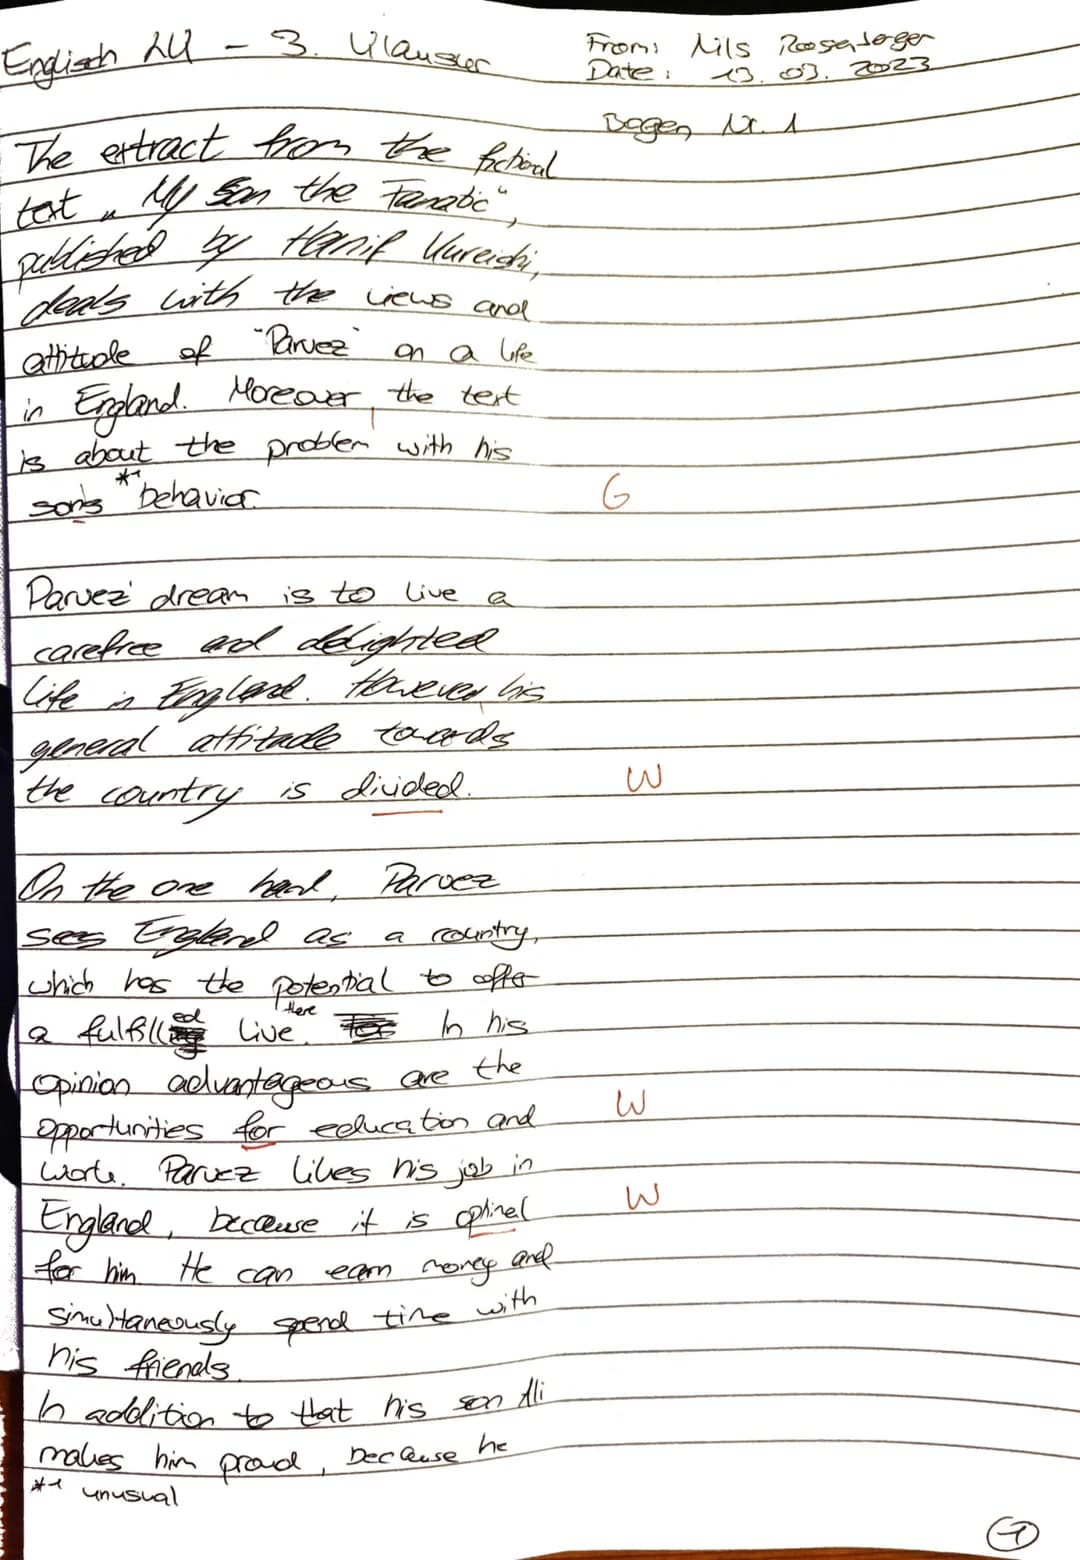 Englisch LK - 3. Klausur
From: Nils Roosenberger
Date: 13. 03. 2023
Bogen Nr. 1
The extract from the fictional
text „My Son the Fanatic“,
published by Hanif Kureishi,
deals with the views and
attitude of "Parvez" on a life
in England. Moreover, the text
is about the problem with his
son's *1 behavior.
G
Parvez' dream is to live a
carefree and delighted
life in England. However, his
general attitude towards
the country is divided.
W
On the one hand, Parvez
sees England as a country,
which has the potential to offer
a fulfilled live there. In his
opinion advantageous are the
opportunities for education and
W
work. Parvez likes his job in
England, because it is optimal
W
for him. He can earn money and
simultaneously spend time with
his friends.
In addition to that his son Ali
makes him proud, because he
*1 unusual
1